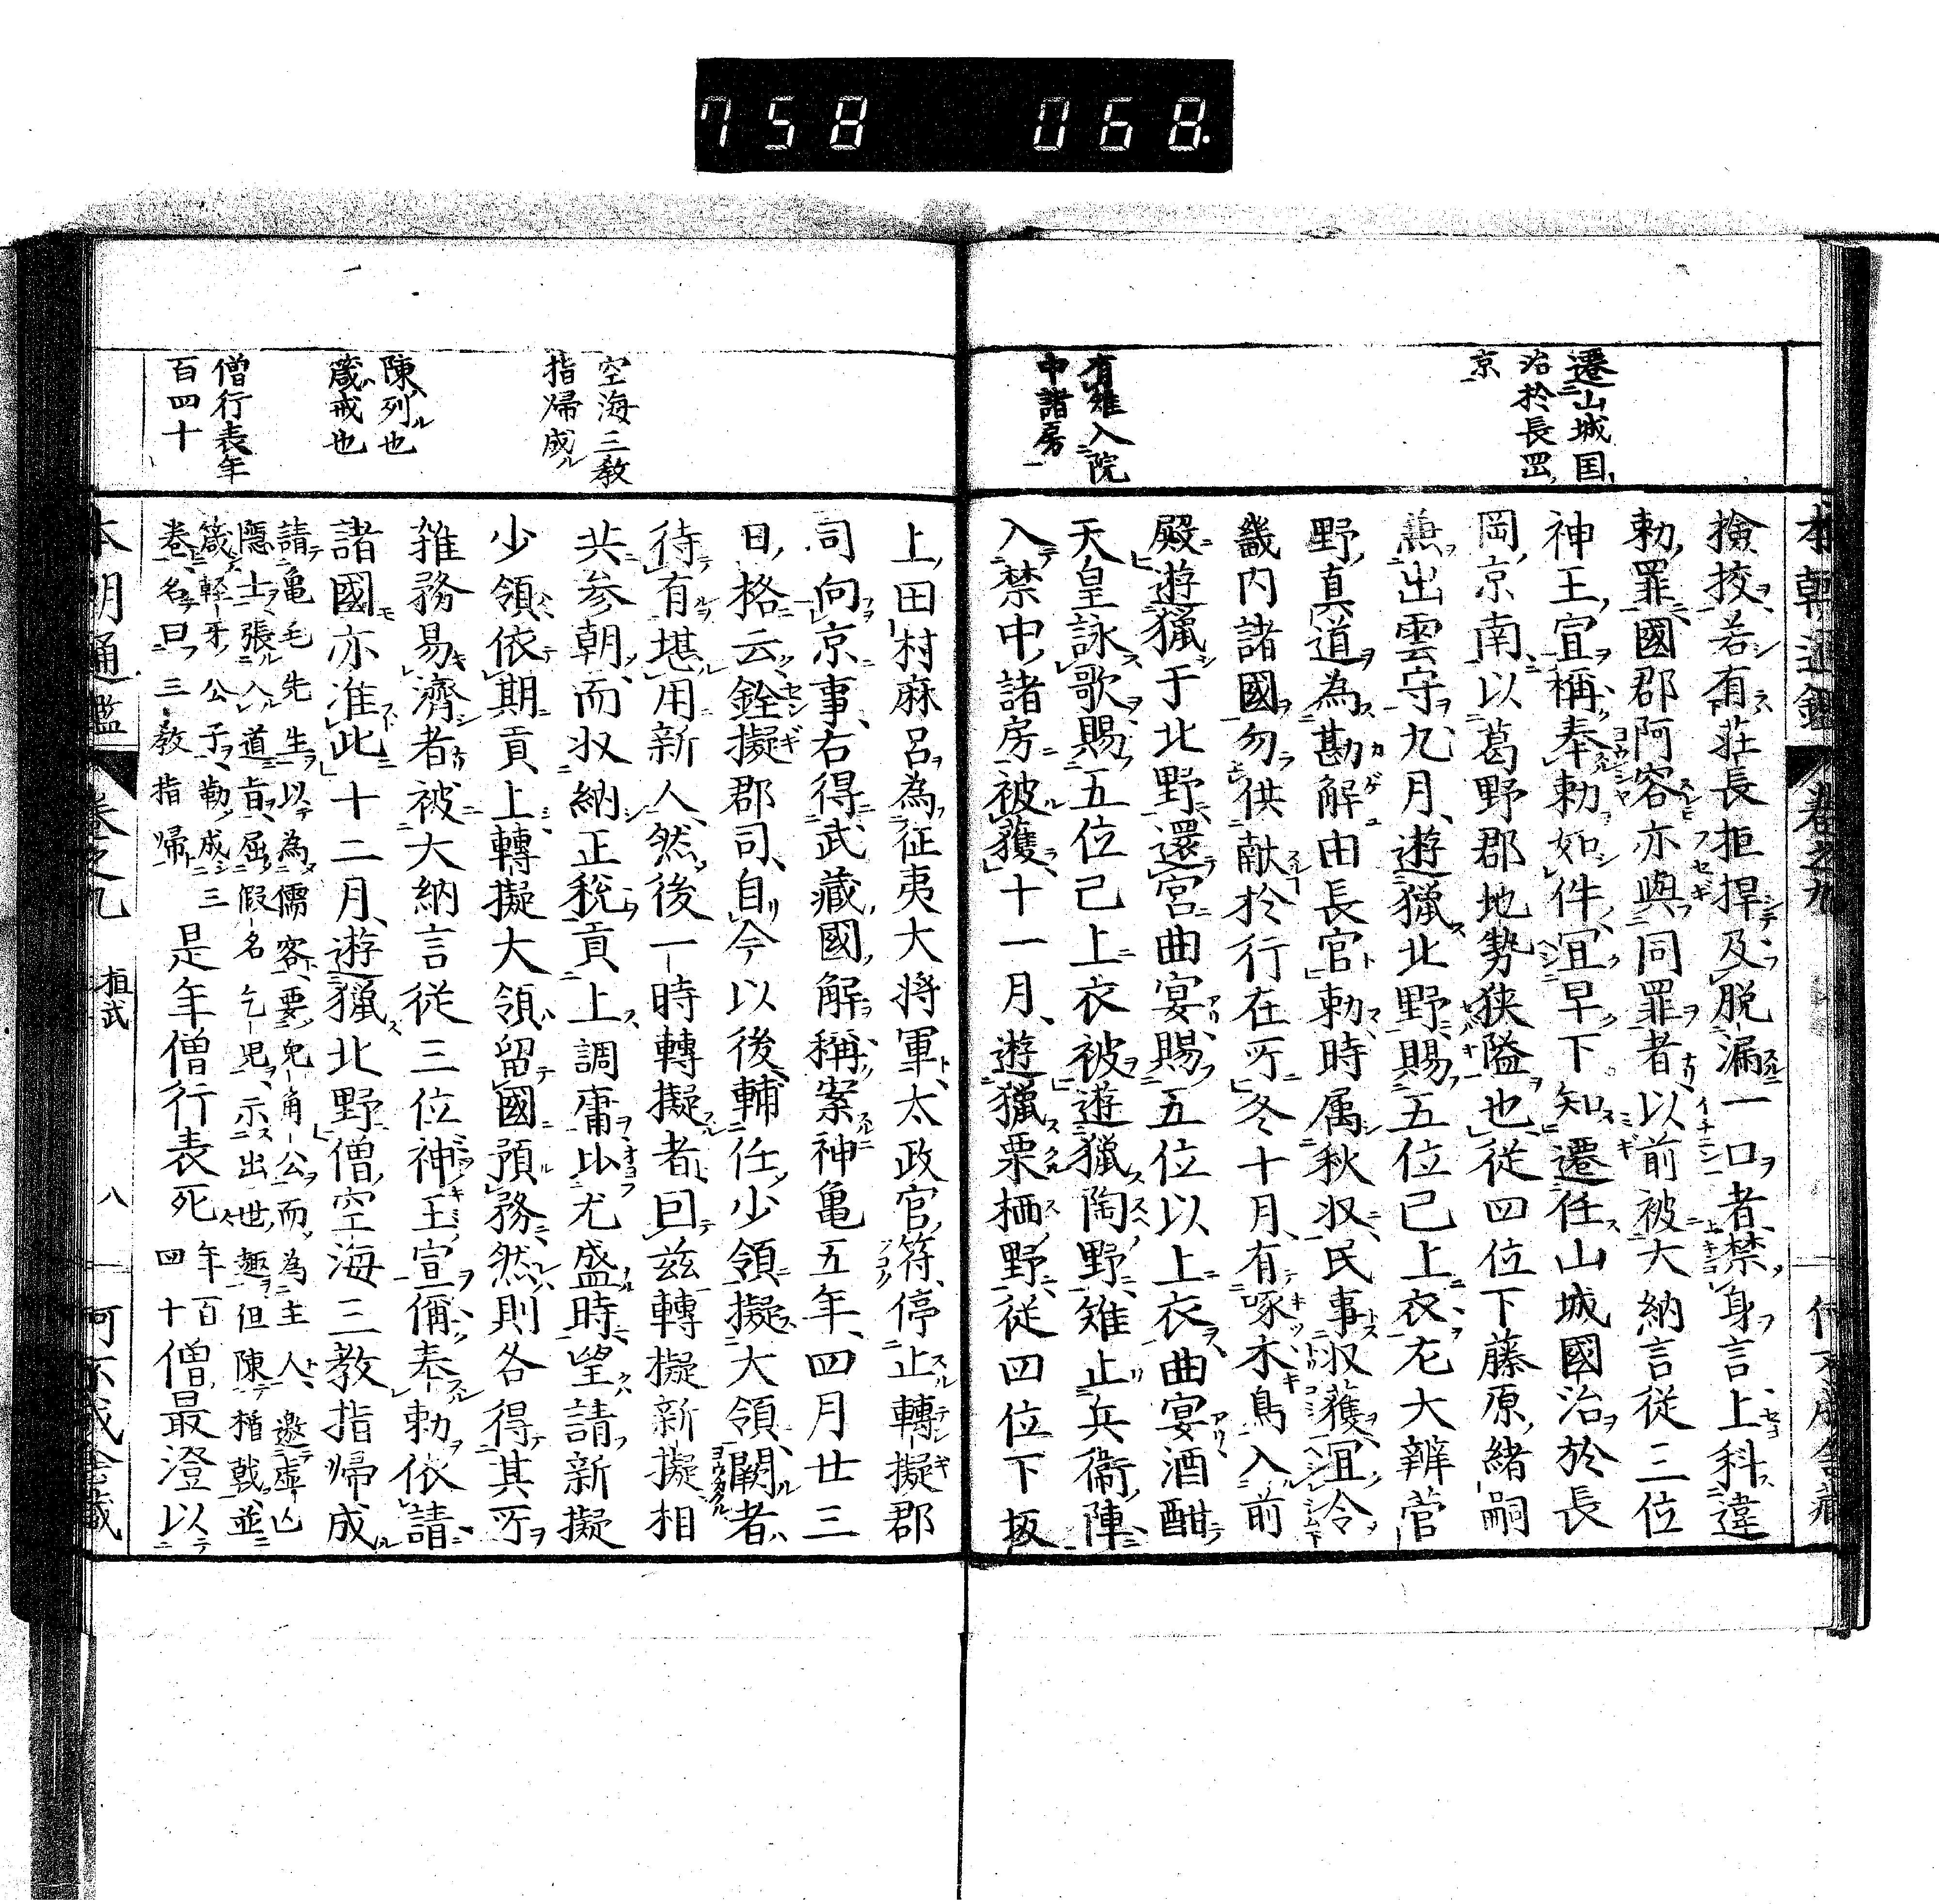 758 068.
遷山城国
治於長罡
京
有雉入院
中諸房
本朝通鑑 卷之九
撿挍若有莊長拒捍及脱漏一口者禁身言上科違
勅罪國郡阿容亦與同罪者以前被大納言從三位
神王宣稱奉勅如件宜早下知遷任山城國治於長
岡京南以葛野郡地勢狹隘也從四位下藤原緒嗣
兼出雲守九月遊獵北野賜五位已上衣左大辨菅
野真道為勘解由長官勅時属秋收民事收獲宜令
畿内諸國勿供献於行在所冬十月有啄木鳥入前
殿遊獵于北野還宮曲宴賜五位以上衣曲宴酒酣
天皇詠歌賜五位己上衣被遊獵陶野雉止兵衞陣
入禁中諸房被獲十一月遊獵栗栖野從四位下坂
空海三教
指帰成
陳列也
箴戒也
僧行表年
百四十
上田村麻呂為征夷大將軍太政官符停止轉擬郡
司向京事右得武藏國解稱案神亀五年四月廿三
日格云銓擬郡司自今以後輔任少領擬大領闕者
待有堪用新人然後一時轉擬者囙兹轉擬新擬相
共参朝而收納正税貢上調庸比尤盛時望請新擬
少領依期貢上轉擬大領留國預務然則各得其所
雜務易濟者被大納言從三位神王宣偁奉勅依請
諸國亦准此十二月遊獵北野僧空海三教指帰成
請亀毛先生以為儒客要兔角公而為主人邀虚亡
隱士張入道旨屈假名乞児示出世趣但陳楯戟並
箴蛭牙公子勒成三
卷名曰三教指帰
是年僧行表死
年百
四十
僧最澄以
本朝通鑑 卷之九 桓武 八